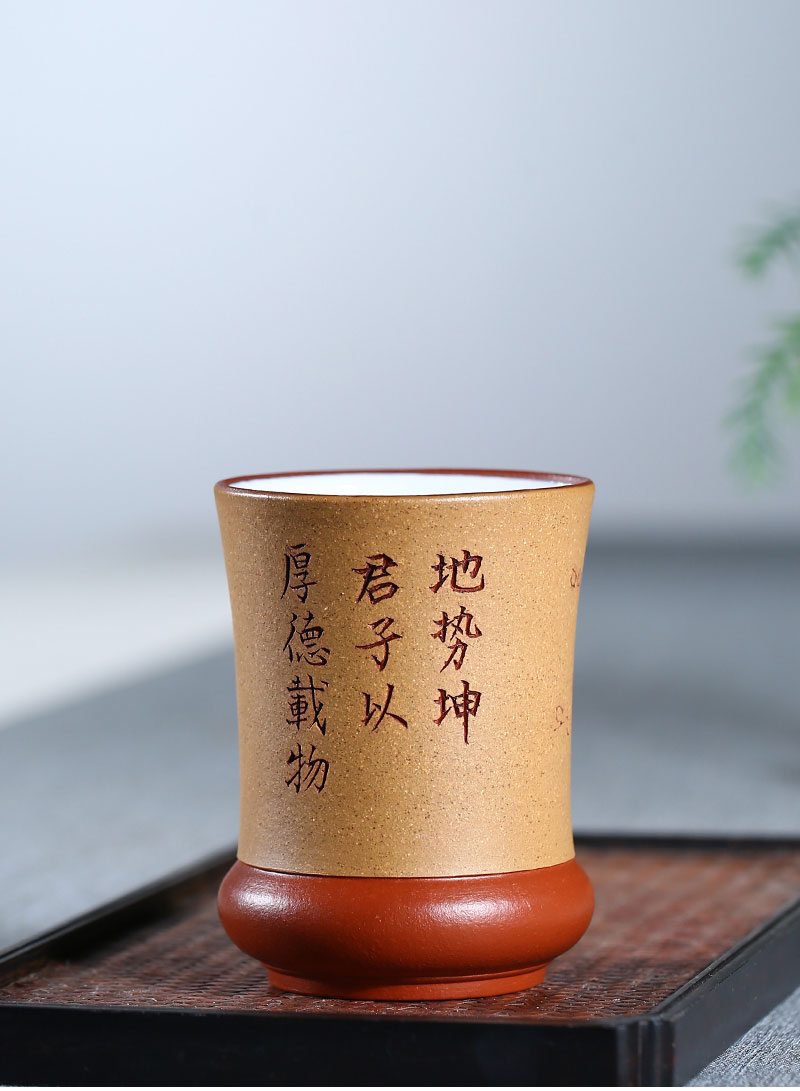 地势坤
君子以
厚德載物